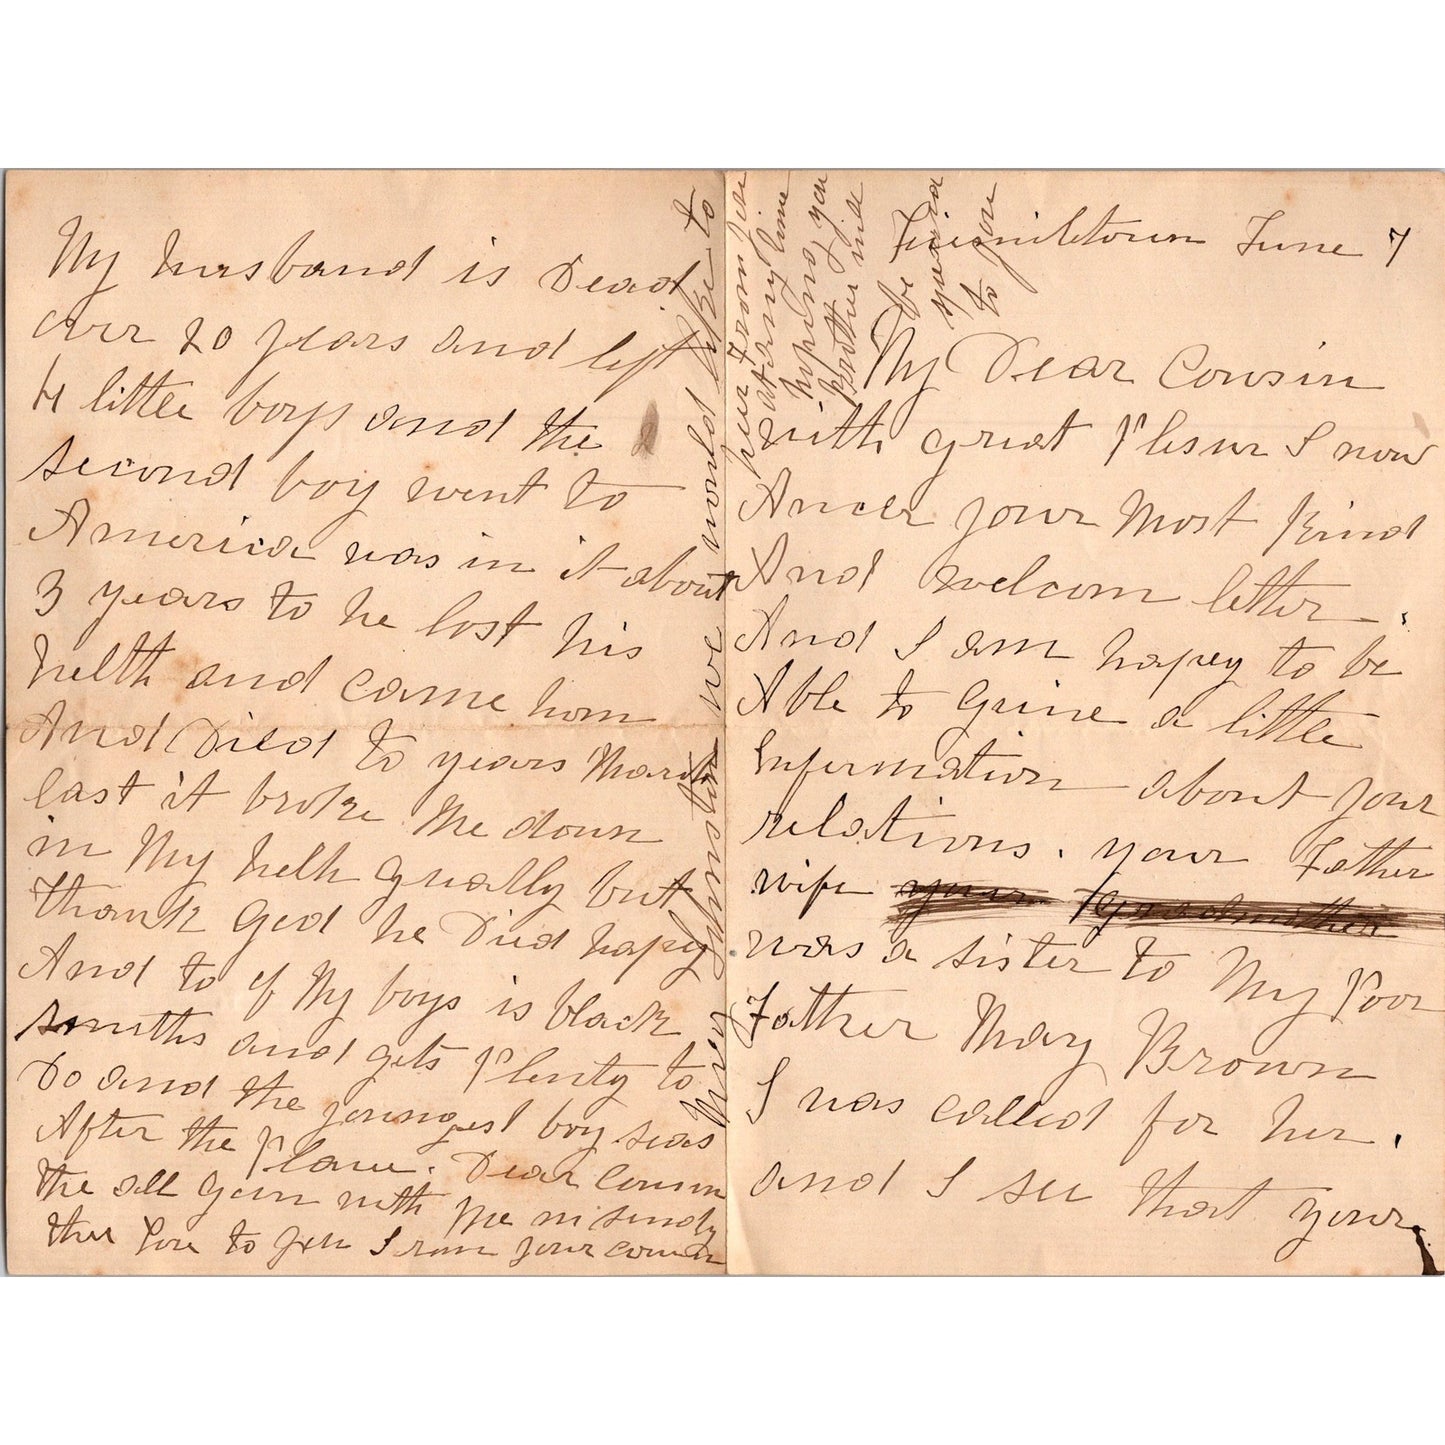 June 7
My Dear Cousin
with great Plesur I now
Ancer your Most Kind
And welcom letter.
And I am hapey to be
Able to give a little
Information about your
relations. your Father
wife your Grandmother
was a sister to My Poor
Father May Brown
I was called for her.
and I see that your
My husband is Dead
over 20 years and left
4 little boys and the
second boy went to
America was in it about
3 years to he lost his
helth and came hom
And Died to years March
last it broke Me down
in My helth gually but
thank God he Died hapey
And to of My boys is black
smiths and gets Plenty to
Do and the youngest boy seas
After the Place. Dear Cousin
the all goin with Me in sendg
ther love to you I ram your cousin
Mary Johnston we would like to
hear From you
at any time
hoping you
brother will
be
to you